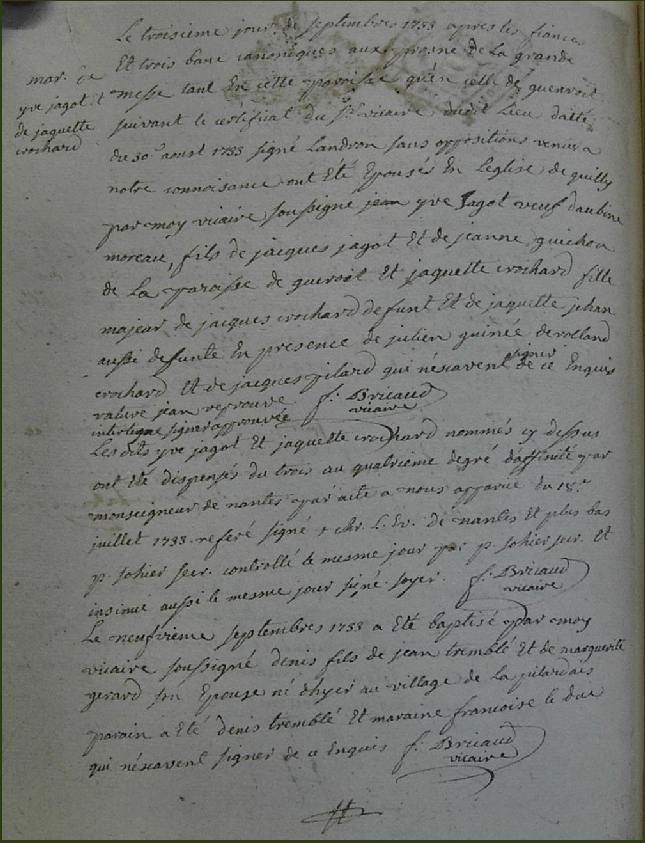 Le troisieme jour de septembres 1733 apres les fiances
Et trois banc canoniques aux prosne de la grande
mar. de
yve jagot et
de jaquette
crochard
messe tant En cette paroisse qu'en celle de guenroit
suivant le certificat du Sr vicaire dudit Lieu datté
du 30e aoust 1733 signé Landron sans oppositions venus a
notre connoisance ont Eté Epousés En Leglise de quilly
par moy vicaire soussigné jean yve Jagot veuf daubine
moreau, fils de jacques jagot Et de jeanne guichon
de La paroisse de guenroit Et jaquette crochard fille
majeur de jacques crochard defunt Et de jaquette jehan
aussi defunte En presence de julien guinée de rolland
crochard Et de jacques pilard qui nescavent signer de ce Enquis
rature jean reprouvé f. Bricaud
interligne signer approuvée vicaire
Les dits yve jagot Et jaquette crochard nommés cy dessus
ont été dispensés du trois au quatrieme degré daffinité par
monseigneur de nantes par acte a nous apparue du 18e
juillet 1733 referé signé + chr. L. Ev. de nantes Et plus bas
p. sohier secr. controllé le mesme jour par p. sohier secr. Et
insinué aussi le mesme jour signé soyer. f. Bricaud
vicaire
Le neufvieme septembres 1733 a Eté baptisé par moy
vicaire soussigné denis fils de jean tremblé Et de marguerite
gerard son Epouse né dhyer au village de La pilardais
parain a Eté denis tremblé Et maraine francoise le duc
qui nescavent signer de ce Enquis f. Bricaud
vicaire